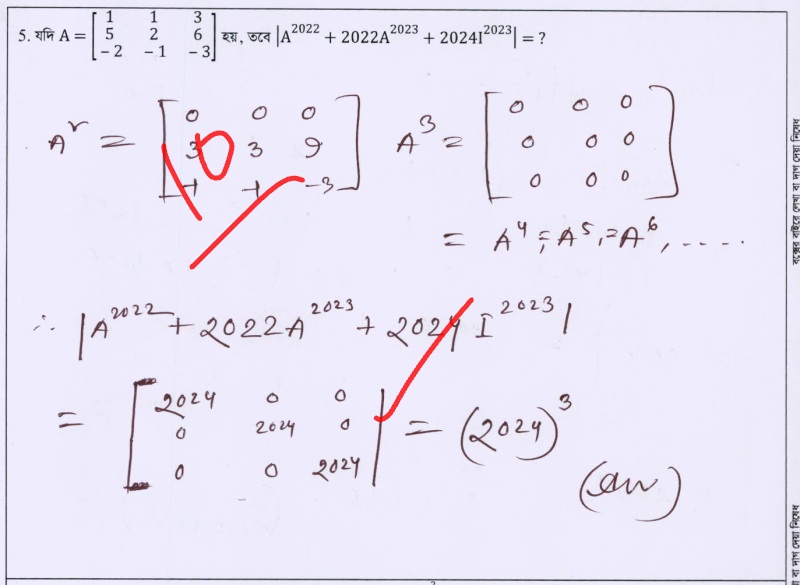 5. যদি A = [1 1 3
5 2 6
-2 -1 -3] হয়, তবে |A^2022 + 2022A^2023 + 2024I^2023| = ?
A^2 = [0 0 0
3 3 9
-1 -1 -3]
A^3 = [0 0 0
0 0 0
0 0 0]
= A^4 = A^5 = A^6, .....
10
∴ |A^2022 + 2022A^2023 + 2024 I^2023|
= [2024 0 0
0 2024 0
0 0 2024| = (2024)^3
(Ans)
বক্সের বাইরে লেখা বা দাগ দেয়া নিষেধ
বা দাগ দেয়া নিষেধ